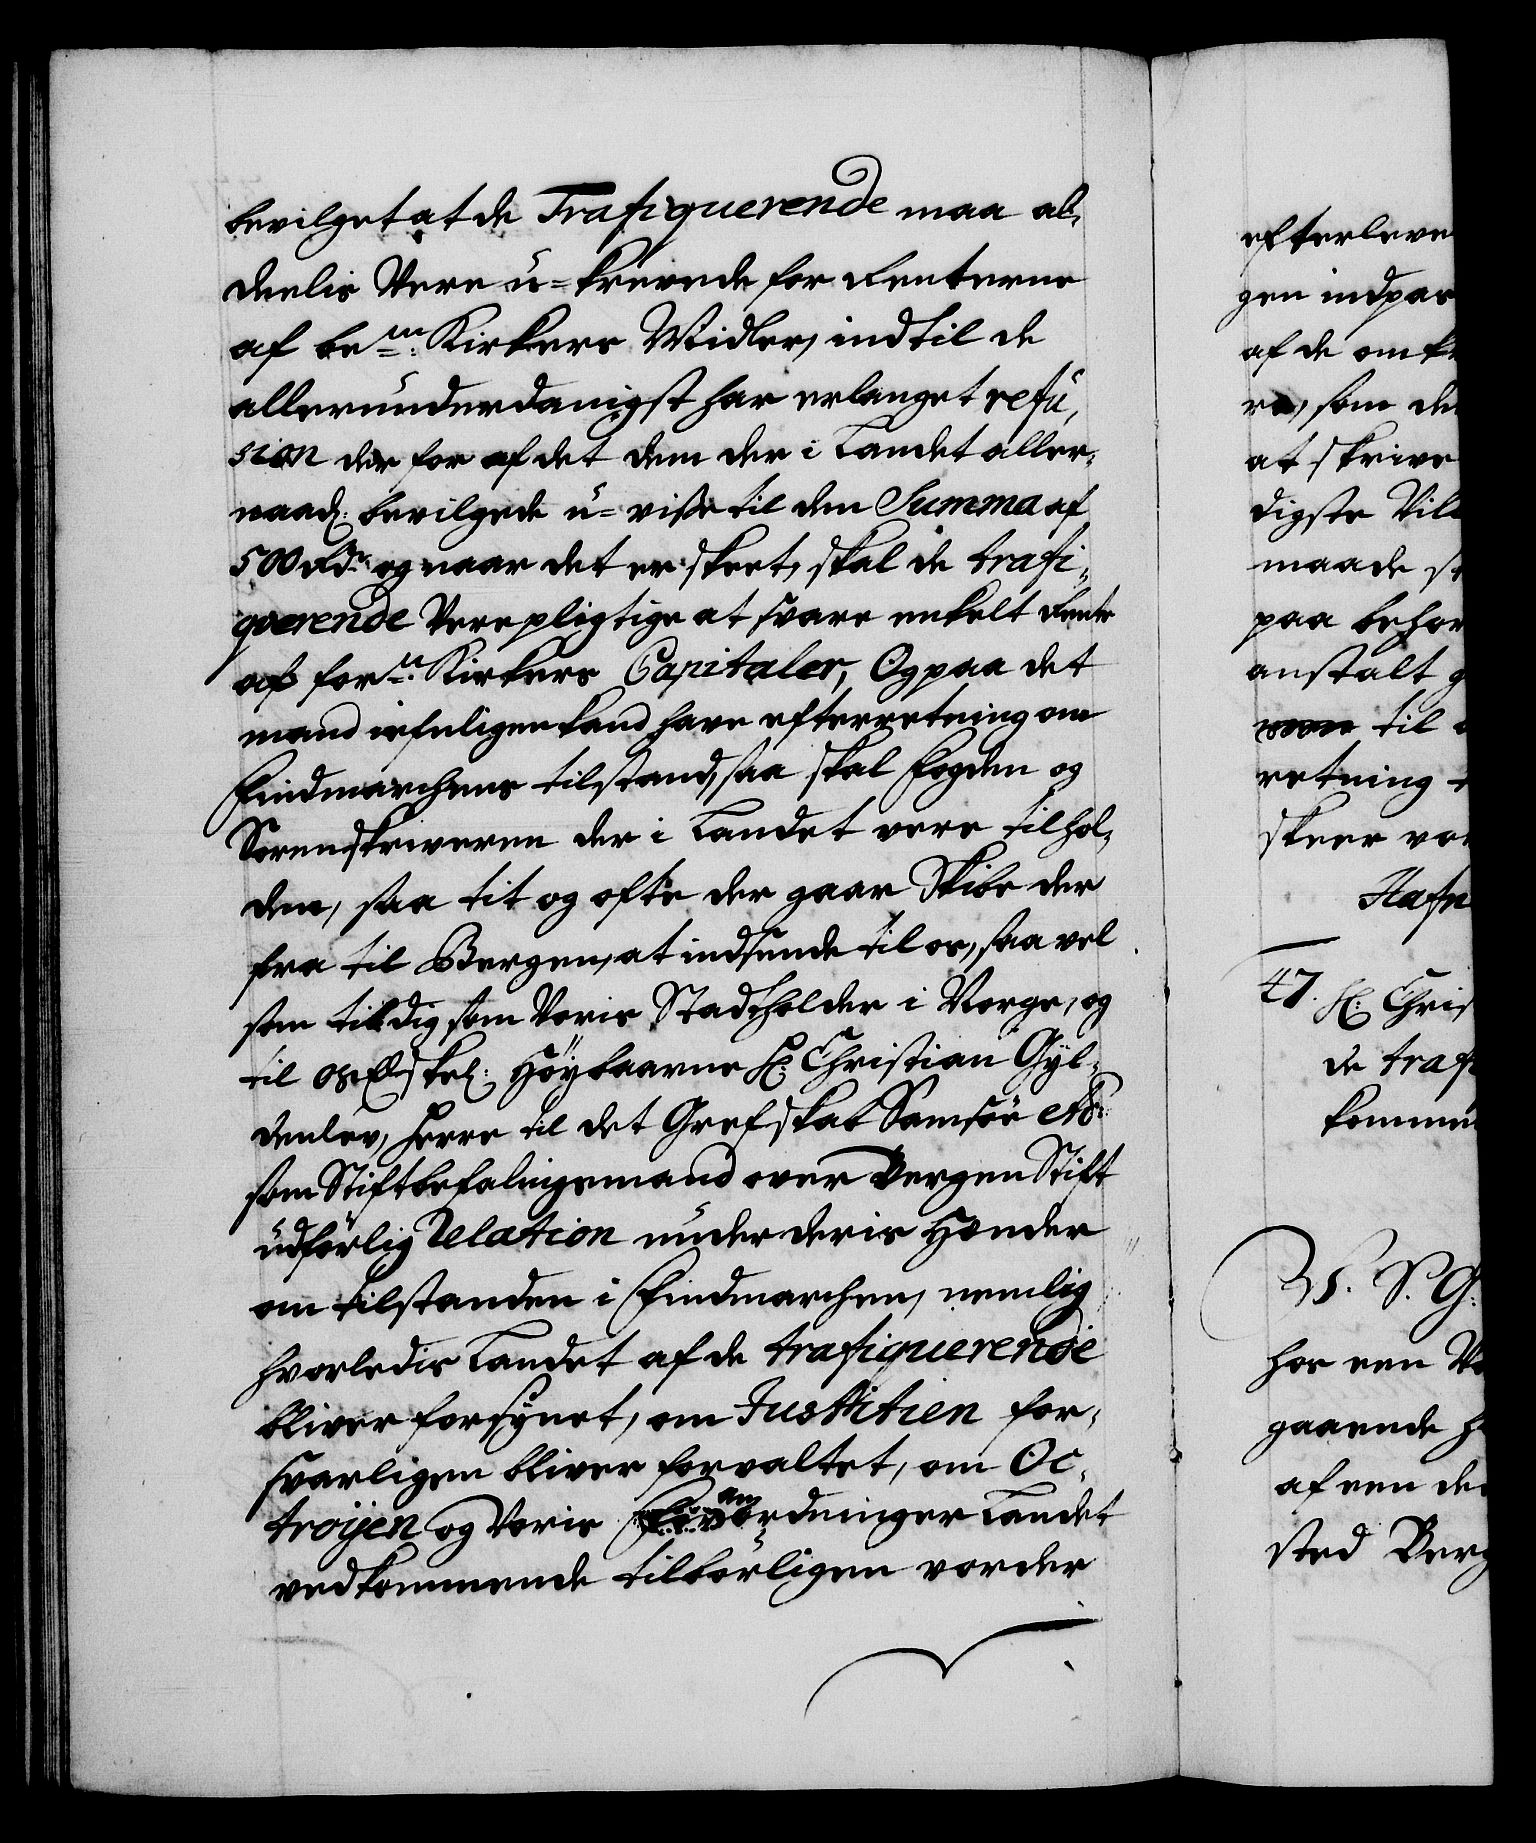 bevilget at de Trafiquerende maa al,
deelis Vere u-krevede for Renterne
af bem.te Kirkers Midler, indtil de
allerunderdanigst har erlanget refu,
sion der for af det dem der i Landet aller,
naad: bevilgede u-visse til den Summa af
500 Rdr. og naar det er skeet, skal de trafi,
qverende Vere pligtige at svare enkelt Rente
af for.te Kirkers Capitaler, Og paa det
mand ideligen kand have efterretning om
Findmarchens tilstand, saa skal Fogden og
Sorenskriveren der i Landet vere tilhol,
den, saa tit og ofte der gaar Skibe der
fra til Bergen, at indsende til os, saa vel
som til dig som Voris Stadtholder i Norge, og
til os Elskel: Höybaarne H: Christian Gyl,
denlev, Herre til det Grefskab Samsöe etc:
som Stiftbefalingsmand over Bergen Stift
udförlig Relation under deris Hænder
om tilstanden i Findmarchen, nemlig
hvorledis Landet af de trafiquerende
bliver forsynet, om Justitien for,
svarligen bliver forvaltet, om Oc,
troyen og Voris an
ordninger Landet
vedkommende tilbörligen vorder
efterleve
gen indpas
af de omk
re, som de
at skrive
digste Vil
maade s
paa behor
anstalt g
til
retning t
skeer vo
Hafn
47. H: Chris
de traf
komme
V. S. G:
hos een V
gaaende h
af een de
sted Berg